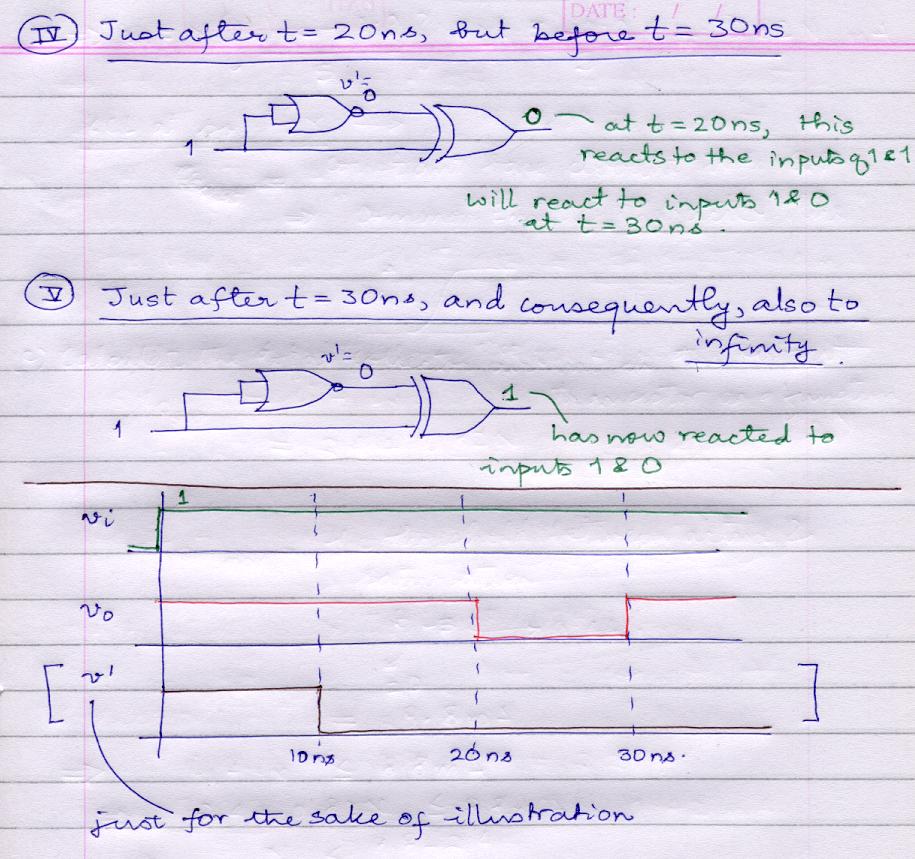 DATE: / /
IV Just after t = 20ns, but before t = 30ns
v'=
0
1
0
at t = 20ns, this
reacts to the inputs of 1 & 1
will react to inputs 1 & 0
at t = 30ns.
V Just after t = 30ns, and consequently, also to
infinity.
v'=
0
1
1
has now reacted to
inputs 1 & 0
1
vi
vo
[ v' ]
10ns 20ns 30ns.
just for the sake of illustration